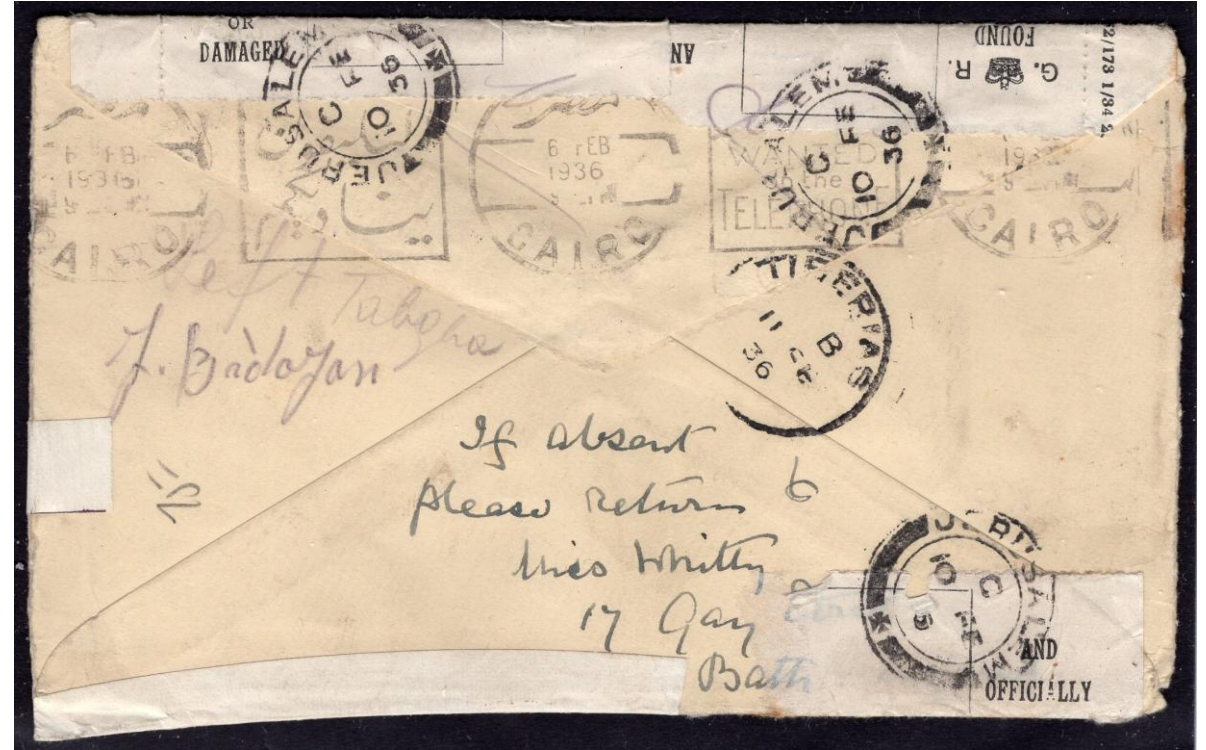 OR
DAMAGED
AN
FOUND
G. R.
2/173 1/34
JERUSALEM
C
10 FE
36
JERUSALEM
C
10 FE
36
6 FEB
1936
CAIRO
6 FEB
1936
CAIRO
WANTED
on the
TELEPHONE
193
CAIRO
TIBERIAS
B
11 FE
36
left
Tabgha
If absent
please return to
Miss Whitty
17 Gay
Bath
JERUSALEM
C
10 FE
36
AND
OFFICIALLY